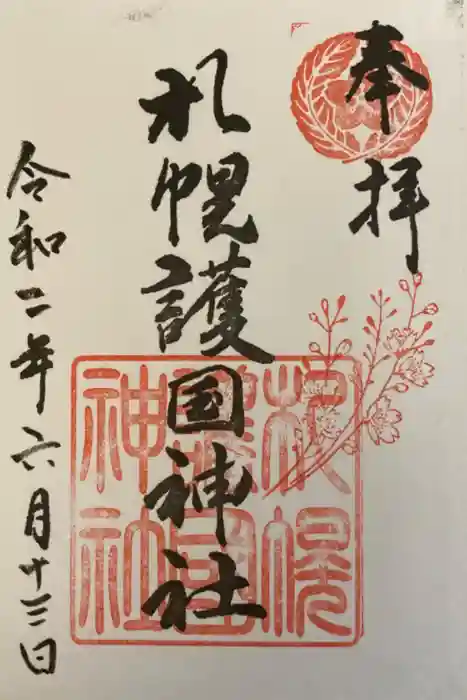 奉拝
札幌護国神社
令和二年六月十三日
札幌
護国
神社